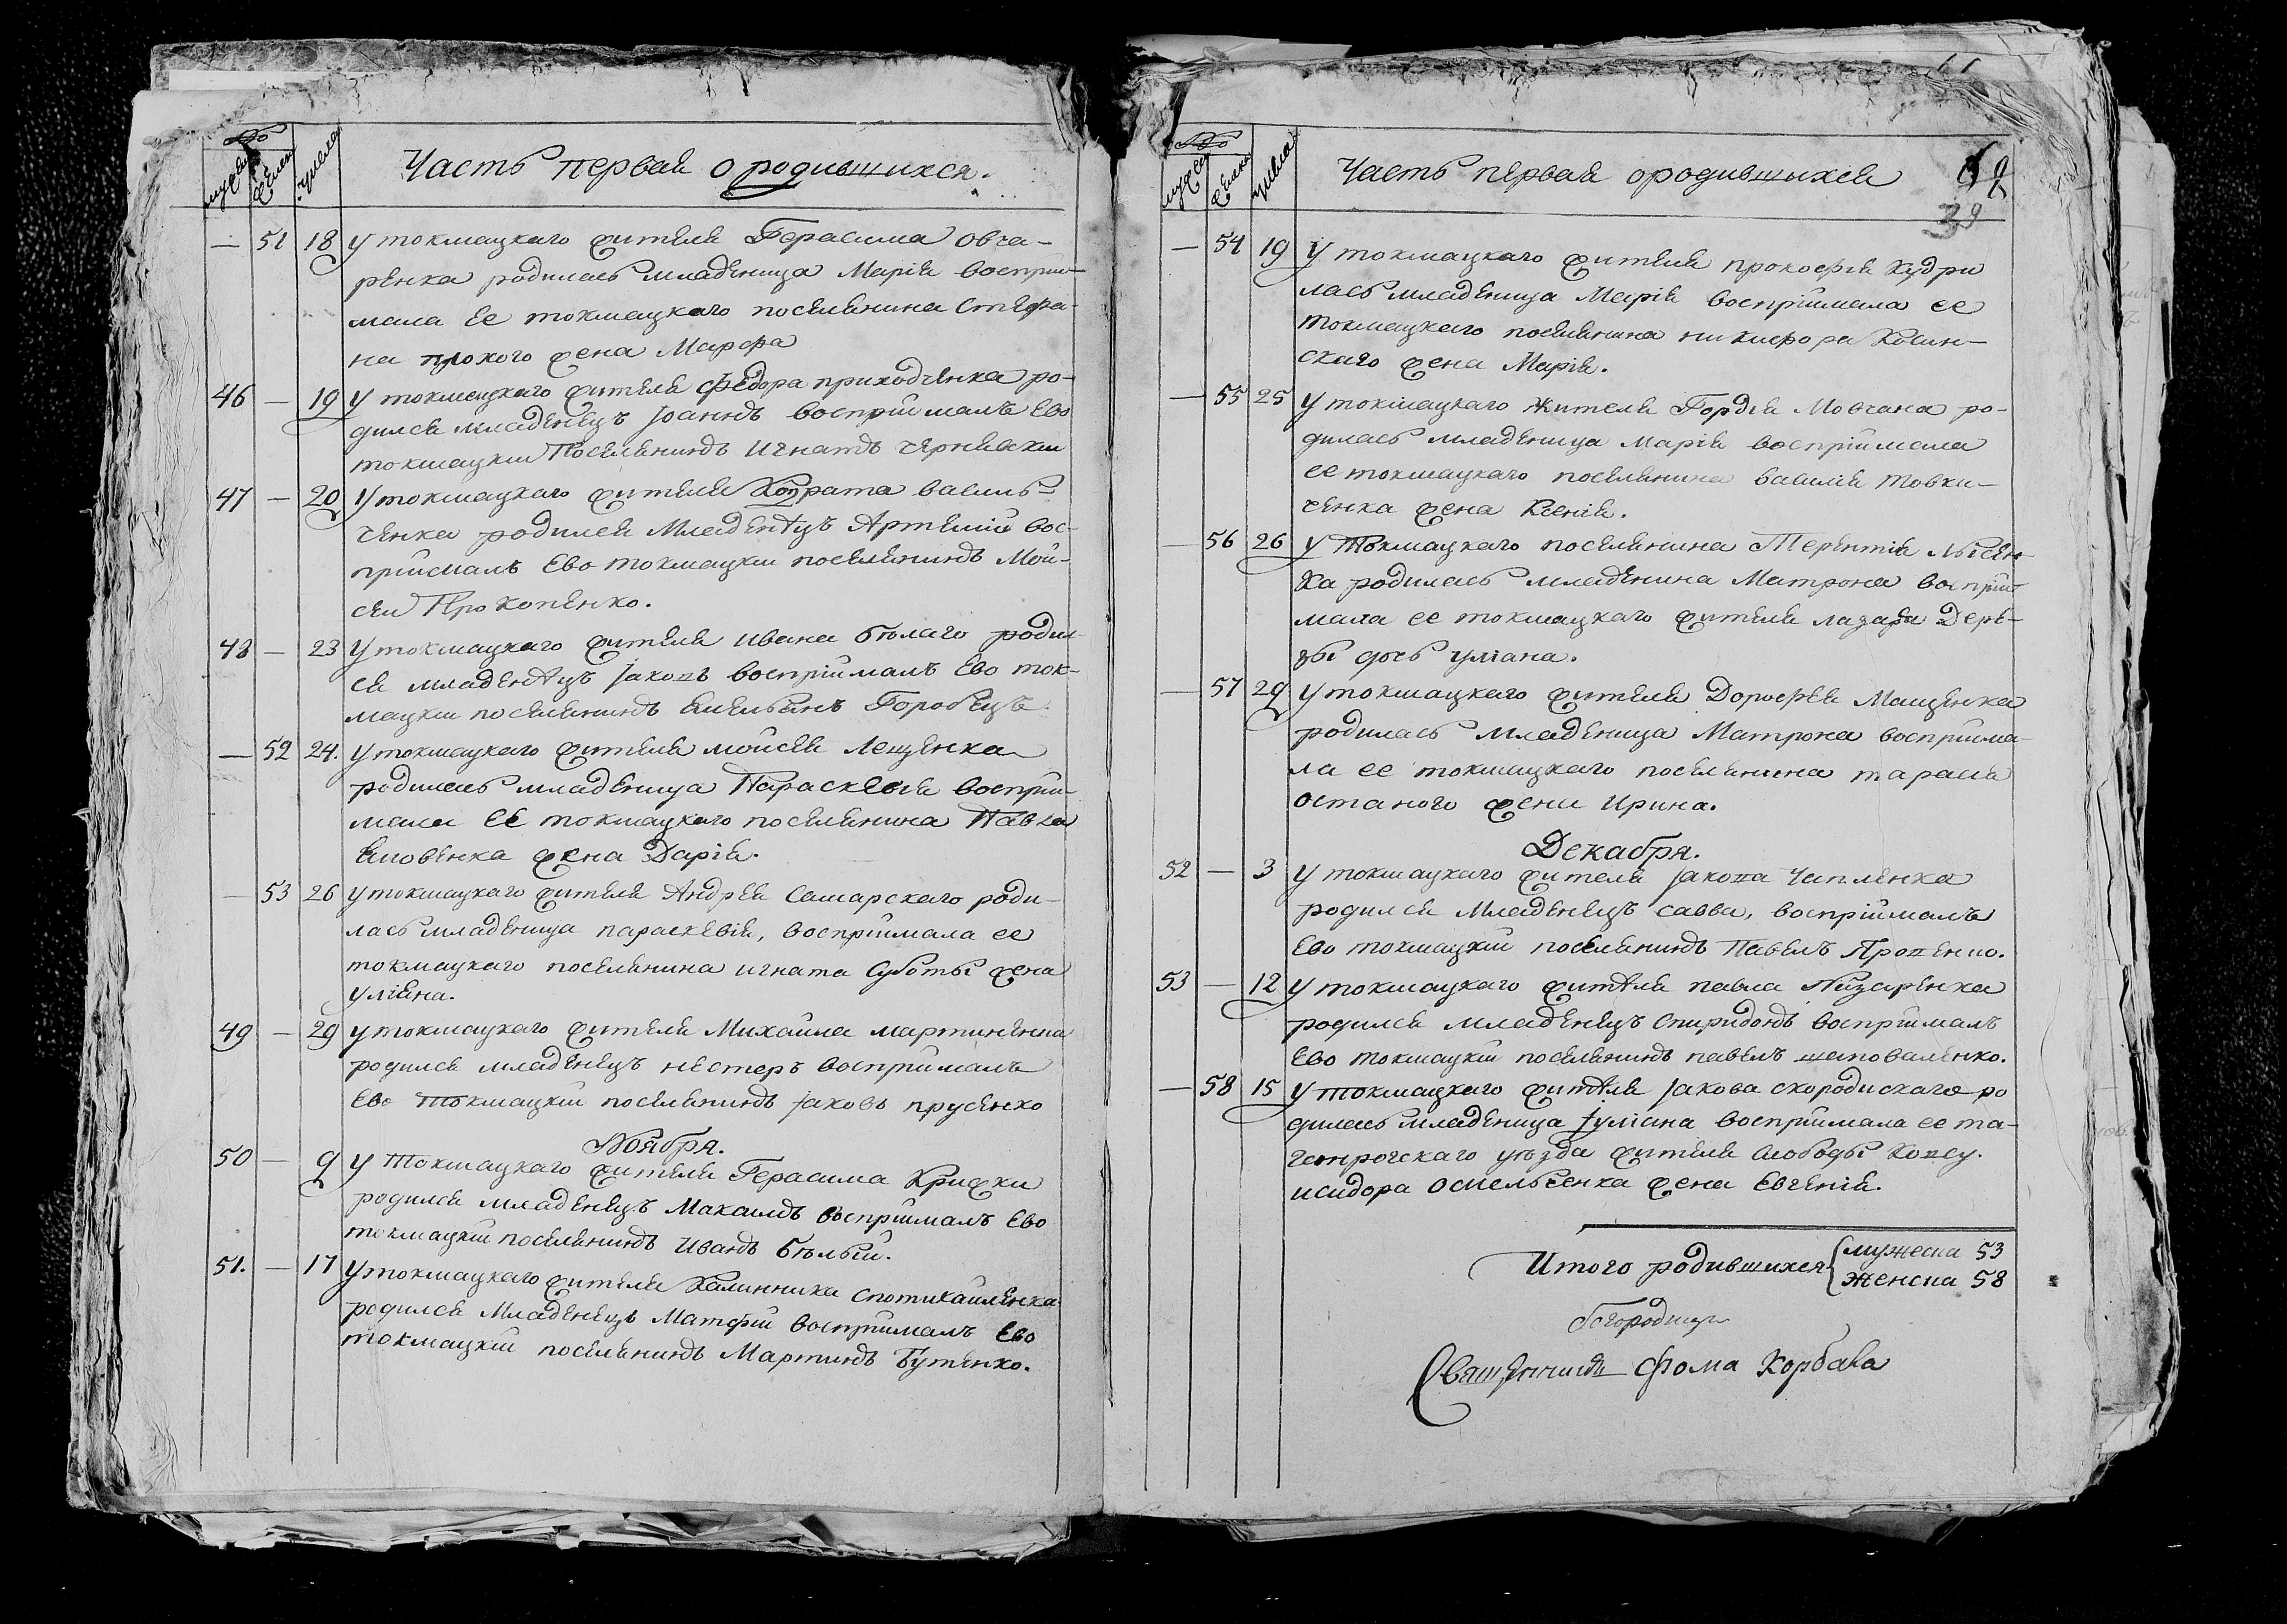 №
мужеска женска числа
Часть первая о родившихся.
— 51 18 у токмацкаго жителя Герасима Овча-
ренка родилась младеница Марія восприи-
мала ее токмацкаго поселянина Стефа-
на плохого жена Марфа
46 — 19 у токмацкаго жителя Федора приходченка ро-
дился младенецъ Іоаннъ восприималъ Ево
токмацкій Поселянинъ Игнатъ чернявскій
47 — 20 у токмацкаго жителя Кондрата василь-
ченка родился Младенецъ Артемій вос-
приималъ Ево токмацкій поселянинъ Мой-
сей Прокопенко.
48 — 23 у токмацкаго жителя Ивана бѣлаго родил-
ся младенецъ Іаковъ восприималъ Ево ток-
мацкій поселянинъ Емельянъ Горобецъ
— 52 24. у токмацкаго жителя мойсея Лещенка
родилась младеница Параскевія восприи-
мала Ее токмацкаго поселянина Павла
жена Дарія.
— 53 26 у токмацкаго жителя Андрея Самарскаго роди-
лась младеница параскевія, восприимала ее
токмацкаго поселянина игната Суботы жена
уліяна.
49 — 29 у токмацкаго жителя Михаила мартиненка
родился младенецъ нестеръ восприималъ
Ево токмацкій поселянинъ Іаковъ прусенко
Ноября.
50 — 9 у токмацкаго жителя Герасима Крижки
родился младенецъ Михаилъ восприималъ Ево
токмацкій поселянинъ Иванъ бѣлый.
51. — 17 у токмацкаго жителя Калинника спотикайленка
родился Младенецъ Матфій восприималъ Ево
токмацкій поселянинъ Мартинъ Бутенко.
№
мужеска женска числа
Часть первая о родившыхся
39
— 54 19 у токмацкаго жителя прокофія Кудри
лась младеница Марія восприимала ее
токмацкаго поселянина никифора
скаго жена Марія.
— 55 25 у токмацкаго жителя Гордія Мовчана ро-
дилась младеница Марія восприимала
ее токмацкаго поселянина василія товки-
ченка жена Ксенія.
— 56 26 у токмацкаго поселянина Терентія лысен-
ка родилась младенина Матрона восприи-
мала ее токмацкаго жителя лазаря Дере-
зы дочь уліана.
— 57 29 у токмацкаго жителя Дорофея Мащенка
родилась младеница Матрона восприима-
ла ее токмацкаго поселянина тарасія
остапого жена Ирина.
Декабря.
52 — 3 у токмацкаго жителя Іакова Чаплинка
родился Младенецъ савва, восприималъ
Ево токмацкій поселянинъ Павелъ Яропенко.
53 — 12 у токмацкаго жителя павла
родился младенецъ Спиридонъ восприималъ
Ево токмацкій поселянинъ павелъ шаповаленко.
— 58 15 у токмацкаго жителя Іакова скородискаго ро
дилась младеница Іуліана восприимала ее та-
ганрогскаго уѣзда жителя слободы
исидора Омельченка жена Евгенія.
Итого родившихся мужеска 53
женска 58
Священникъ Фома Корбава